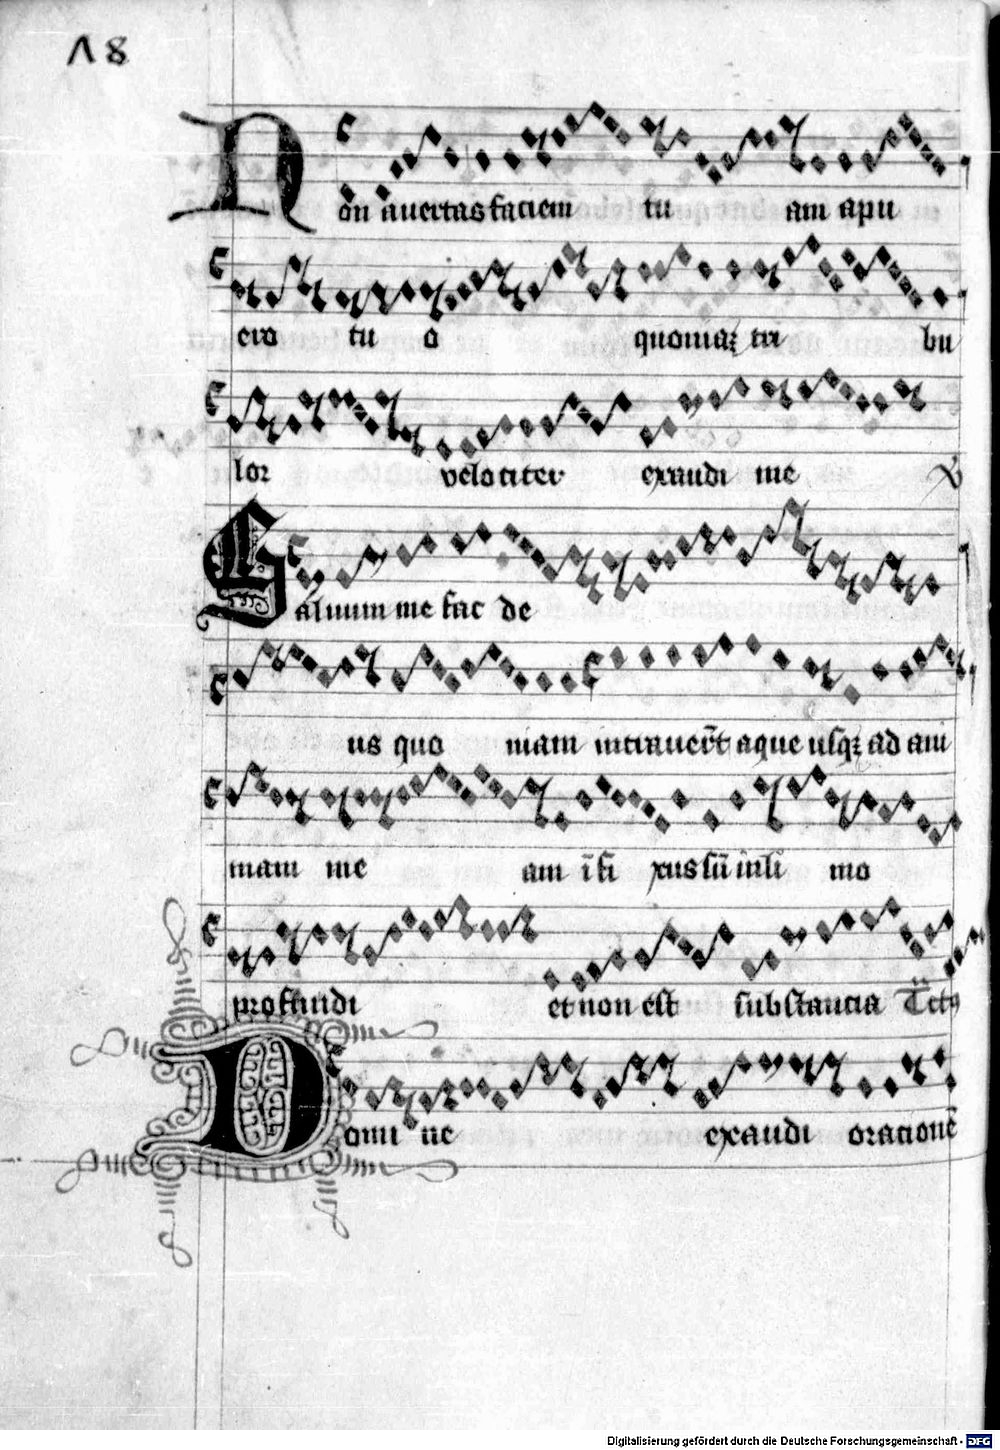 18
Non auertas faciem tu am a pu
ero tu o quoniaꝫ tri bu
lor velociter exaudi me
Saluum me fac de
us quo niam intrauer̄t aque usqꝫ ad ani
mam me am īfi xus sū in li mo
profundi et non est substancia
Domi ne exaudi oracionē
Digitalisierung gefördert durch die Deutsche Forschungsgemeinschaft - DFG